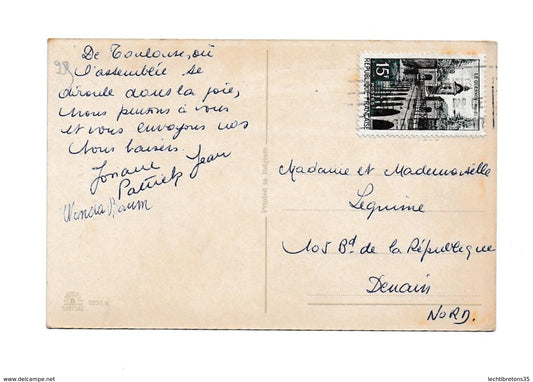 De Toulouse, où
l'assemblée se
déroule dans la joie,
nous pensons à vous
et vous envoyons nos
bons baisers.
Josiane Jean
Patrick
Wanda Baum
28
Printed in Belgium
SPECIAL
15F
Madame et Mademoiselle
Lequime
105 Bd de la République
Denain
NORD.
www.delcampe.net
lechtibretons35